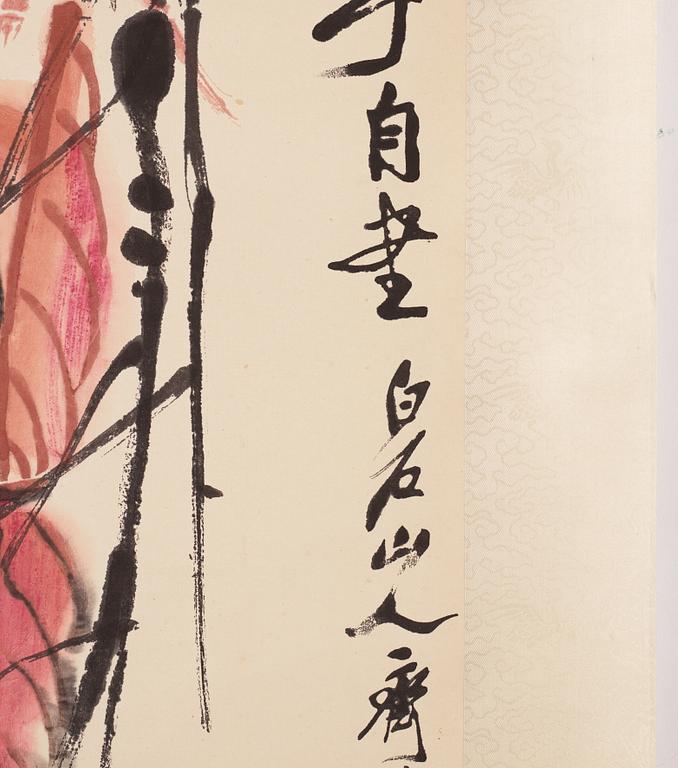 自畫白石山人齊